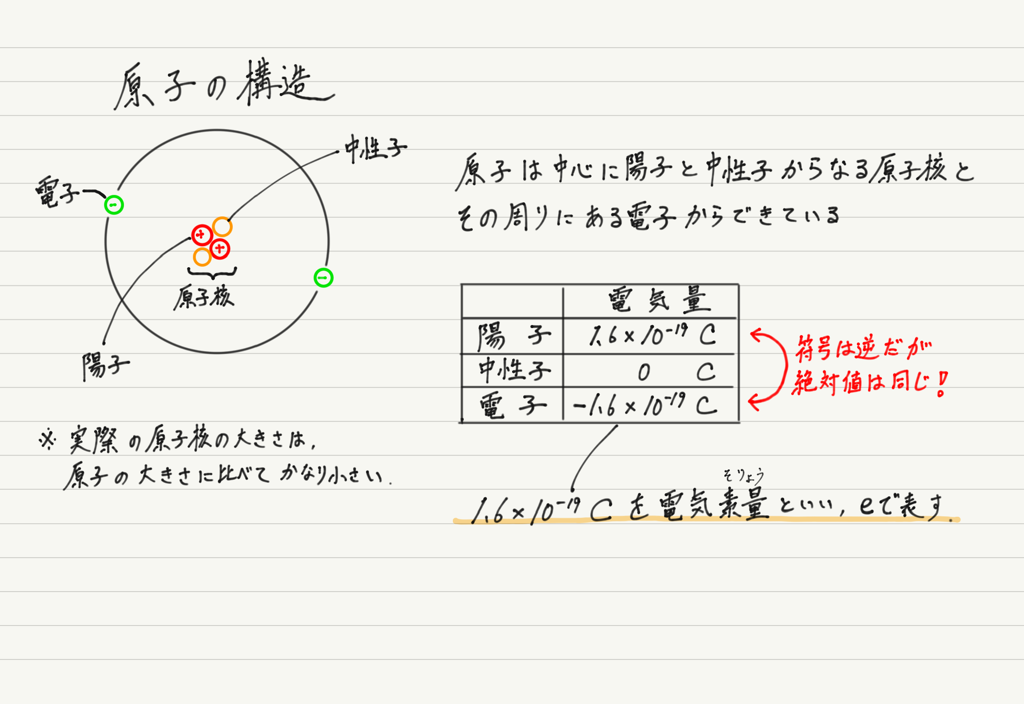 原子の構造
中性子
電子
原子核
陽子
※ 実際の原子核の大きさは,
原子の大きさに比べてかなり小さい.
原子は中心に陽子と中性子からなる原子核と
その周りにある電子からできている
電気量
陽子 1.6×10⁻¹⁹ C
中性子 0 C
電子 −1.6×10⁻¹⁹ C
符号は逆だが
絶対値は同じ!
そりょう
1.6×10⁻¹⁹ C を電気素量といい, eで表す.